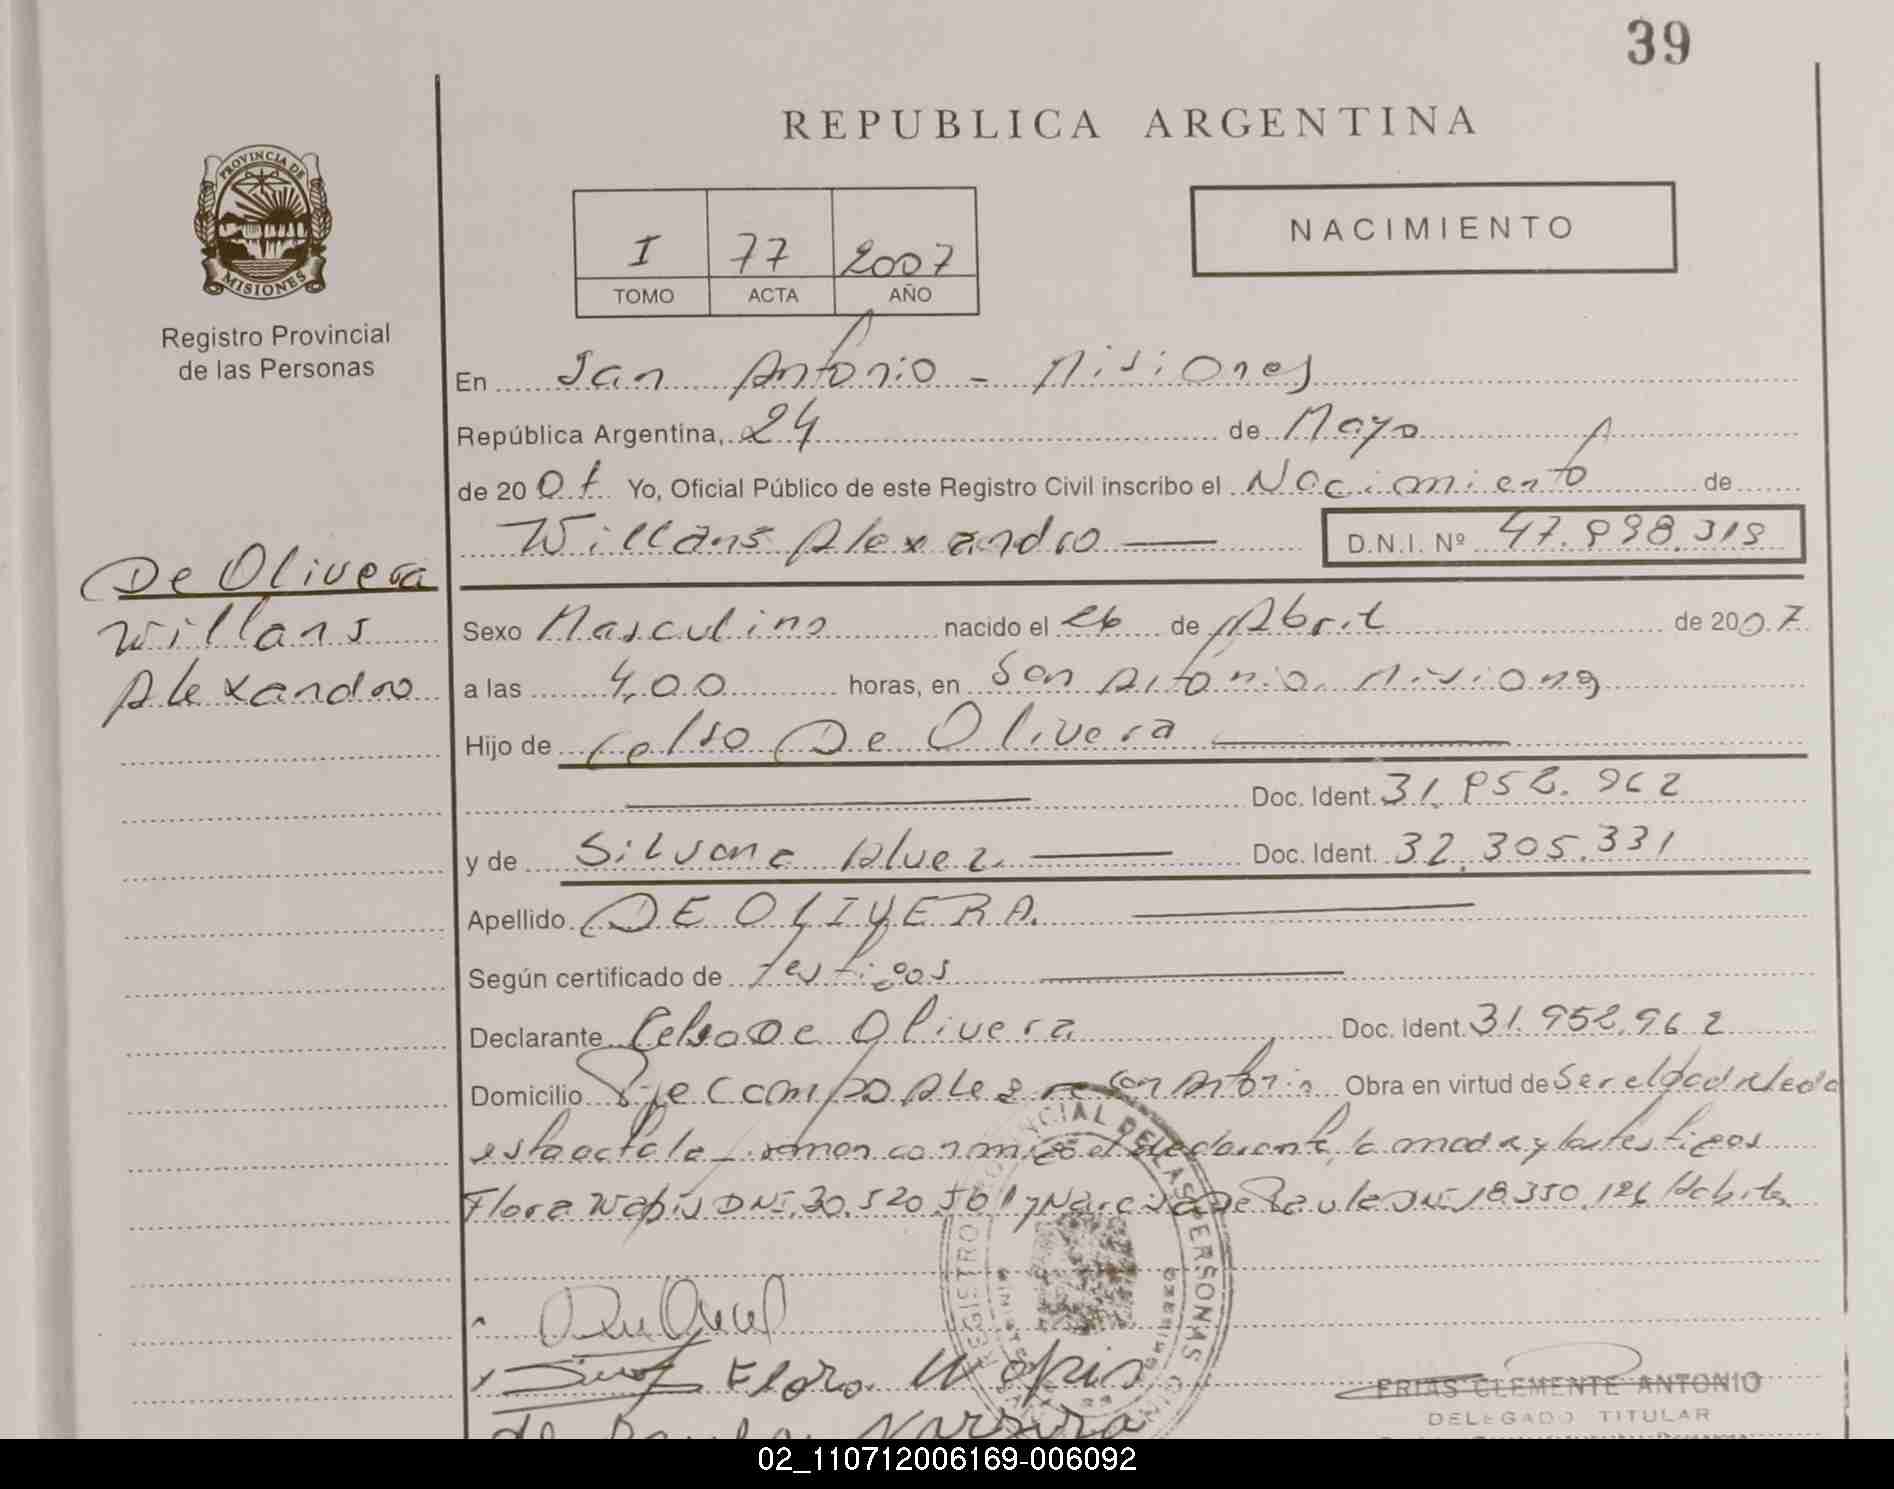 39
REPUBLICA ARGENTINA
PROVINCIA DE
MISIONES
Registro Provincial
de las Personas
I 77 2007
TOMO ACTA AÑO
NACIMIENTO
En San Antonio - Misiones
República Argentina, 24 de Mayo
de 2007 Yo, Oficial Público de este Registro Civil inscribo el Nacimiento de
Willans Alexandro D.N.I. Nº 47.998.319
De Olivera
Willans
Alexandro
Sexo Masculino nacido el 26 de Abril de 2007
a las 4,00 horas, en San Antonio Misiones
Hijo de Celso De Olivera
Doc. Ident. 31.952.962
y de Silvana Alvez Doc. Ident. 32.305.331
Apellido DE OLIVERA
Según certificado de testigos
Declarante Celso De Olivera Doc. Ident. 31.952.962
Domicilio Pje Campo Alegre San Antonio Obra en virtud de Ser el padre Leida
esta acta la firman conmigo el declarante, la madre y los testigos
Flora Wapis DNI. 30.520.501 y Narcisa De Paula DNI 18.350.126
REGISTRO PROVINCIAL DE LAS PERSONAS
Flora Wapis
de Paula
FRIAS CLEMENTE ANTONIO
DELEGADO TITULAR
02_110712006169-006092